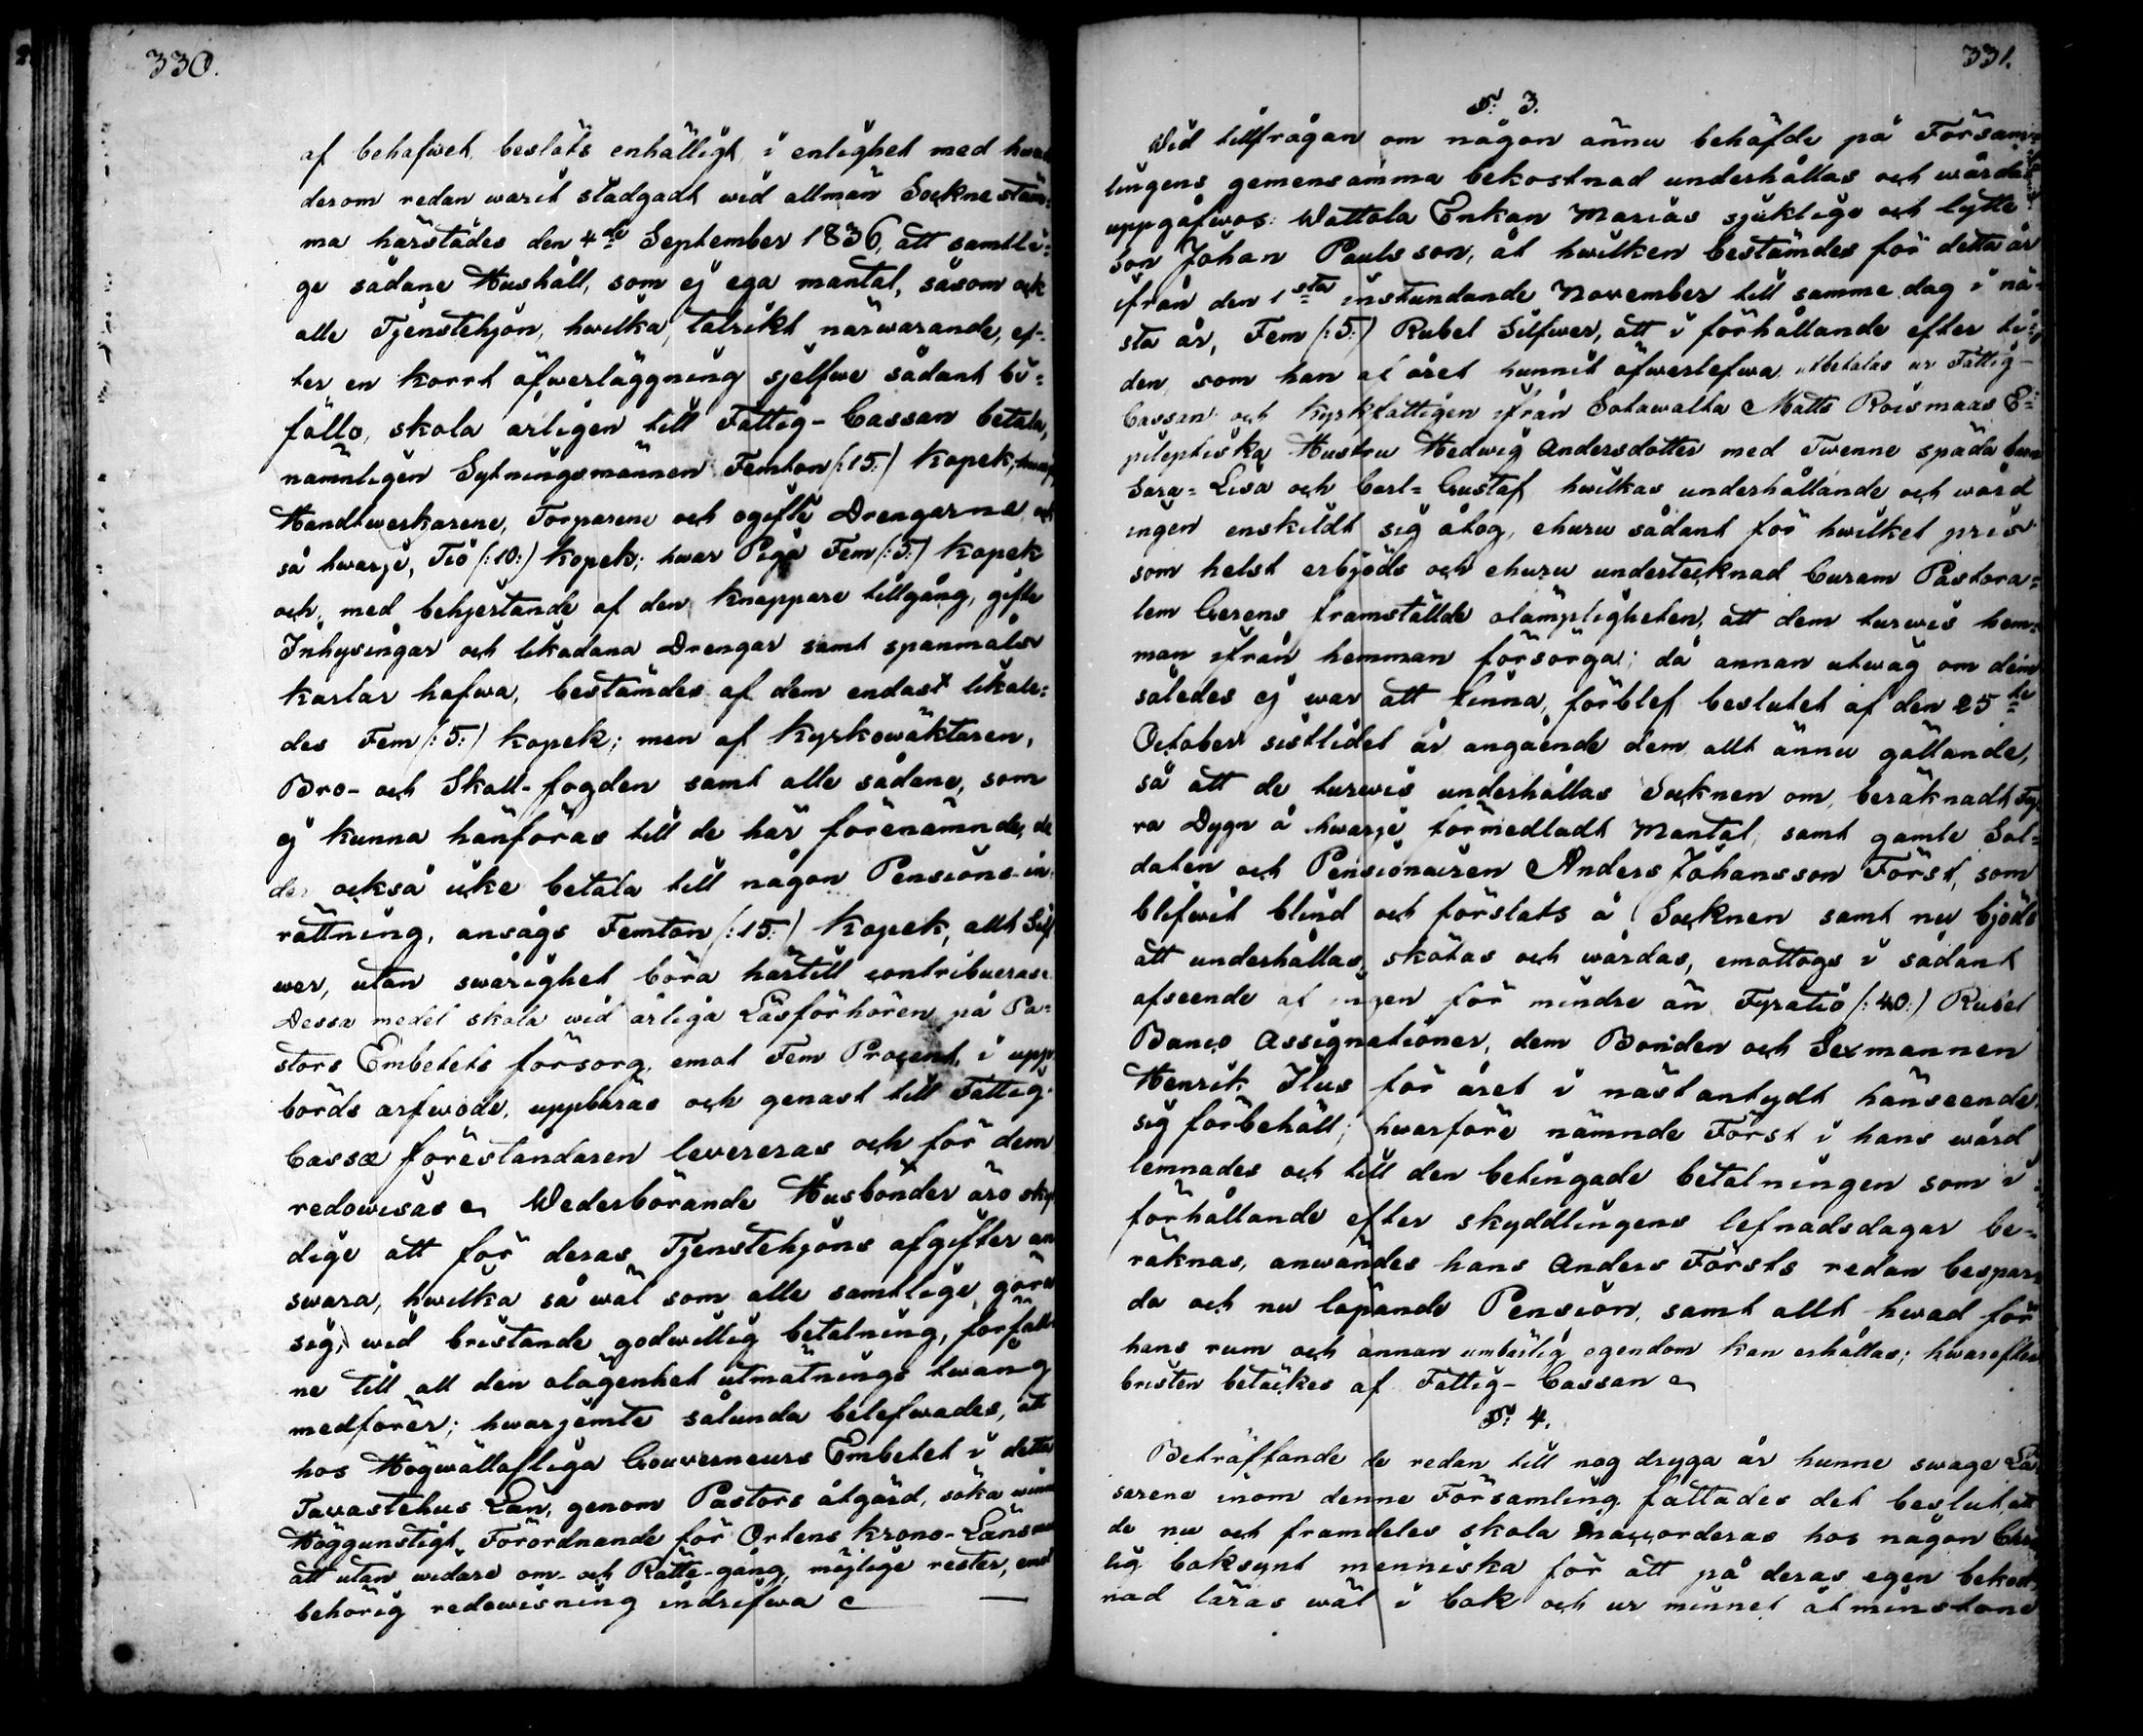 330.
af behafwet, beslöts enhälligt, i enlighet med hwad
derom redan warit stadgadt wid allmän Sockne stäm-
ma härstädes den 4de September 1836, att samtli-
ge sådane Hushåll, som ej ega mantal, såsom ock
alle Tjenstehjon, hwilka, talrikt närwarande, ef-
ter en kort öfwerläggning sjelfwe sådant bi-
föllo, skola årligen till Fattig-Cassan betala,
nämnligen Sytningsmännen Femton (:15:) Kopek,
Handtwerkarene, Torparene och ogifte Drengarne
så hwarje, Tio (:10:) kopek; hwar Piga Fem (:5:) kopek
och, med behjertande af den knappare tillgång, gifte
Inhysingar och likadana Drengar samt spanmåls
karlar hafwa, bestämdes af dem endast likale-
des Fem (:5:) kopek; men af Kyrkowäktaren,
Bro- och Skall-fogden samt alle sådane, som
ej kunna hänföras till de här förenämnde,
också icke betala till någon Pensions-in-
rättning, ansågs Femton (:15:) Kopek, allt Silf
wer, utan swårighet böra härtill contribueras.
Dessa medel skola wid årliga Läsförhören på Pa-
stors Embetets försorg, emot Fem Procent i upp-
börds arfwode, uppbäras och genast till Fattig-
Cassæ föreståndaren levereras och för dem
redowisas. Wederbörande Husbönder äro skyl
dige att för deras Tjenstehjons afgifter an
swara, hwilka så wäl som alle samtlige, göra
sig, wid bristande godwillig betalning, förfall
ne till all den olägenhet utmätnings twång
medförer; hwarjemte sålunda belefwades, att
hos Högwällofliga Gouverneurs Embetet i detta
Tavastehus Län, genom Pastors åtgärd, söka
Höggunstigt Förordnande för Ortens krono-Läns
att utan widare om- och Rätte-gång, möjlige rester, emot
behörig redowisning indrifwa
331.
§. 3.
Wid tillfrågan om någon ännu behöfde på Försam-
lingens gemensamma bekostnad underhållas och wårdas
uppgåfwos: Wattola Enkan Marias sjuklige och lytte
son Johan Paulsson, åt hwilken bestämdes för detta år
ifrån den 1sta instundande November till samme dag i nä-
sta år, Fem (:5:) Rubel Silfwer, att i förhållande efter ti-
den, som han af året hunnit öfwerlefwa, utbetalas ur Fattig-
Cassan och Kyrkfattigen ifrån Sotawalta Matts Roismaas E-
pileptiska Hustru Hedwig Andersdotter med Twenne späda barn
Sara-Lisa och Carl-Gustaf, hwilkas underhållande och wård
ingen enskildt sig åtog, ehuru sådant för hwilket pris
som helst erbjöds och ehuru undertecknad Curam Pastora-
lem Gerens framställde olämpligheten, att dem turwis hem-
man ifrån hemman försörga; då annan utwäg om dem
således ej war att finna, förblef beslutet af den 25te
October sistlidet år angående dem allt ännu gällande,
så att de turwis underhållas Socknen om, beräknadt Fy-
ra Dygn å hwarje förmedladt Mantal, samt gamle Sol-
daten och Pensionairen Anders Johansson Först, som
blifwit blind och förslats å Socknen samt nu bjöds
att underhållas, skötas och wårdas, emottogs i sådant
afseende af ingen för mindre än Fyratio (:40:) Rubel
Banco Assignationer, dem Bonden och Sexmannen
Henrik Ilus för året i nästantydt hänseende,
sig förbehöll; hwarföre nämnde Först i hans wård
lemnades och till den betingade betalningen som i
förhållande efter skyddlingens lefnadsdagar be-
räknas, anwändes hans Anders Försts redan bespar
da och nu löpande Pension, samt allt hwad för
hans rum och annan umbärlig egendom kan erhållas; hwarefter
bristen betäckes af Fattig-Cassan
§. 4.
Beträffande de redan till nog dryga år hunne swage Lä
sarena inom denne Församling fattades det beslut, att
de nu och framdeles skola inaccorderas hos någon
lig boksynt menniska för att på deras egen bekost
nad läras wäl i bok och ur minnet åtminstone